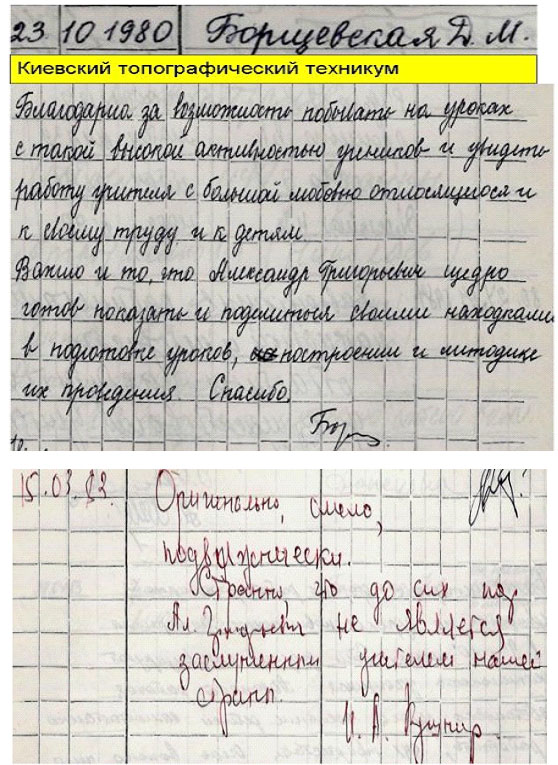 23.10 1980 Борщевская Д. М.
Киевский топографический техникум
Благодарна за возможность побывать на уроках
с такой высокой активностью учеников и увидеть
работу учителя с большой любовью относящегося и
к своему труду и к детям.
Важно и то, что Александр Григорьевич щедро
готов показать и поделиться своими находками
в подготовке уроков, построении и методике
их проведения. Спасибо.
15.03.82.
Оригинально, смело,
подвижнически.
Странно, что до сих пор
Ал. не является
заслуженным учителем нашей
страны.
И. А.